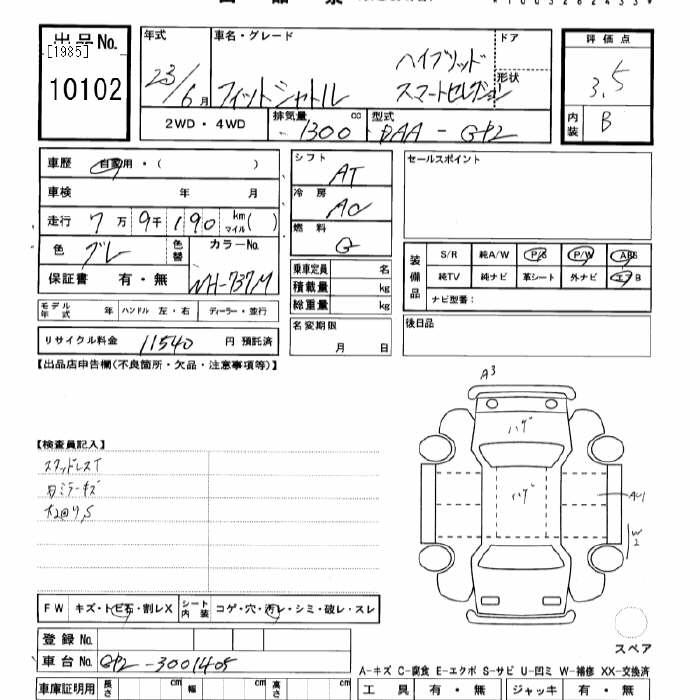 出品No.
[1985]
10102
年式
23/6月
車名・グレード
フィットシャトル
ハイブリッド
スマートセレクション
ドア
形状
2WD・4WD
排気量
1300 cc
型式
DAA-GP2
評価点
3.5
内装
B
車歴 自家用・( )
車検 年 月
走行 7万9千190 km マイル( )
色 グレ
色替
カラーNo.
NH-737M
保証書 有・無
モデル年式 年 ハンドル 左・右 ディーラー・並行
リサイクル料金 11540 円 預託済
シフト
AT
冷房
AC
燃料
G
乗車定員 名
積載量 kg
総重量 kg
名変期限
月 日
セールスポイント
装備品
S/R 純A/W P/S P/W ABS
純TV 純ナビ 革シート 外ナビ エアB
ナビ型番:
後日品
【出品店申告欄(不良箇所・欠品・注意事項等)】
【検査員記入】
スタッドレスT
A3
ハゲ
ハゲ
AU1
W2
FW キズ・トビ石・割レX
シート内装 コゲ・穴・汚レ・シミ・破レ・スレ
スペア
登録No.
車台No. GP2-3001405
A-キズ C-腐食 E-エクボ S-サビ U-凹ミ W-補修 XX-交換済
車庫証明用 長さ cm 幅 cm 高さ cm
工具 有・無 ジャッキ 有・無